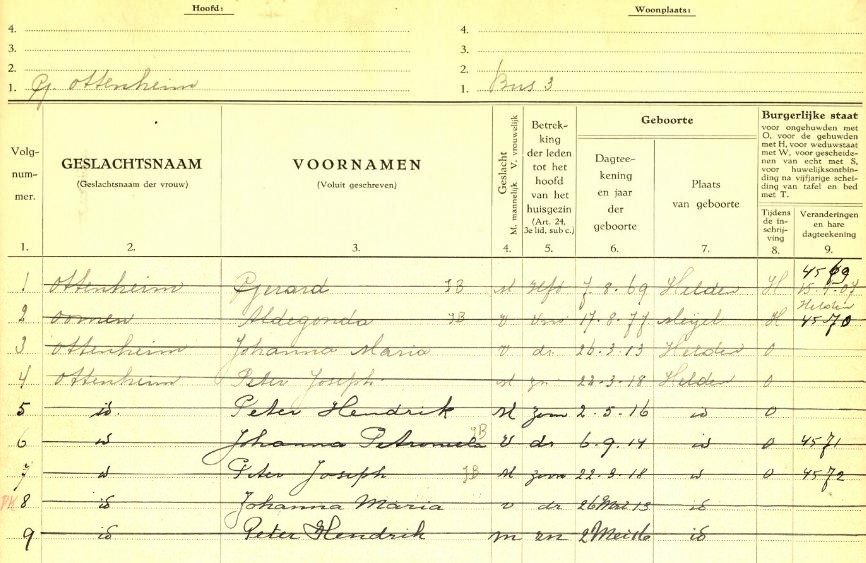 Hoofd: Woonplaats:
4. 4.
3. 3.
2. 2.
1. Pg. Ottenheim 1. Bus 3
Volg-nummer. GESLACHTSNAAM (Geslachtsnaam der vrouw) VOORNAMEN (Voluit geschreven) Geslacht M. mannelijk V. vrouwelijk Betrekking der leden tot het hoofd van het huisgezin (Art. 24, 3e lid, sub c.) Geboorte Dagteekening en jaar der geboorte Plaats van geboorte Burgerlijke staat voor ongehuwden met O, voor de gehuwden met H, voor weduwstaat met W, voor gescheidenen van echt met S, voor huwelijksontbinding na vijfjarige scheiding van tafel en bed met T. Tijdens de inschrijving Veranderingen en hare dagteekening
1. 2. 3. 4. 5. 6. 7. 8. 9.
1 Ottenheim Pgerard JB M Hfd 7-8-69 Helden H 4569
Helden
2 Oomen Aldegonda JB V 17-8-77 Meijel H 4570
3 Ottenheim Johanna Maria V dr 26-3-13 Helden O
4 Ottenheim Peter Joseph M 22-3-18 Helden O
5 id. Peter Hendrik M zoon 2-5-16 id O
6 id Johanna Petronella JB V dr 6-9-14 id O 4571
7 id Peter Joseph JB M zoon 22-3-18 id O 4572
PK 8 id Johanna Maria V dr 26 13 id
9 id Peter Hendrik m zn 2 Mei 16 id